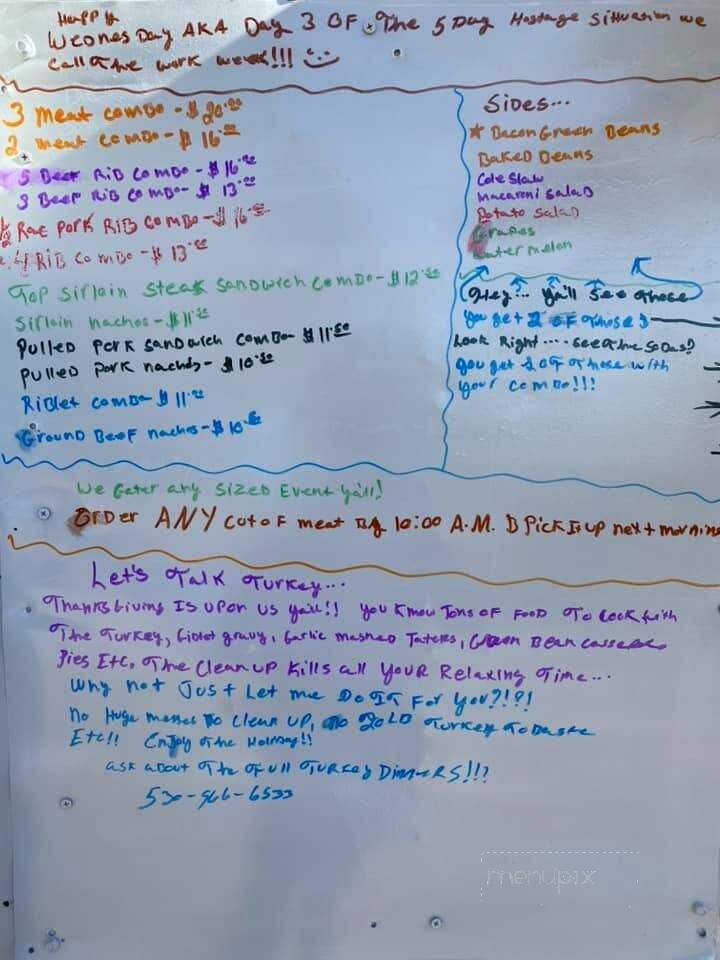 Happy
Wednes Day AKA Day 3 OF The 5 Day Hostage Sittuation we
call the work week!!!
3 meat combo - $20.00
2 meat combo - $16.00
5 Beef Rib combo - $16.00
3 Beef Rib combo - $13.00
1/2 Rack Pork Rib Combo - $16.00
1/4 Rib Combo - $13.00
Top Sirloin Steak Sandwich combo - $12.50
Sirloin nachos - $11.50
Pulled Pork Sandwich combo - $11.50
Pulled Pork nachos - $10.50
Riblet combo - $11.00
Ground Beef nachos - $10.00
Sides...
Bacon Green Beans
Baked Beans
Cole Slaw
Macaroni Salad
Potato Salad
Grapes
Water melon
(Hey!... Ya'll See those
You get 2 OF those)
Look Right .... See the Sodas?
You get 1 OF those with
Your combo!!!
We Cater any Sized Event ya'll!
Order ANY cut of meat By 10:00 A.M. & Pick It up next morning
Let's Talk Turkey...
Thanksgiving Is upon us ya'll!! You Know Tons OF FOOD To Cook with
The Turkey, Giblet gravy, Garlic mashed Taters, Green Bean
Pies Etc. The Clean up Kills all YOUR Relaxing Time...
Why not Just Let me Do IT For You?!?!
No Huge messes to clean up, no Turkey To Baste
Etc!! Enjoy The Holiday!!
ask about The Full Turkey Dinners!!!?
530-566-6533
menupix